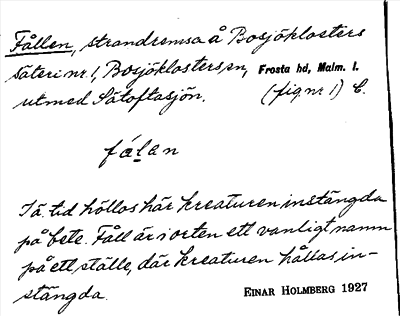 Fållen, strandremsa å Bosjöklosters
säteri nr. 1, Bosjöklosters sn, Frosta hd, Malm. l.
utmed Sätoftasjön. (fig. nr 1) C.
fålan
I ä. tid höllos här kreaturen instängda
på bete. Fåll är i orten ett vanligt namn
på ett ställe, där kreaturen hållas in-
stängda.
EINAR HOLMBERG 1927